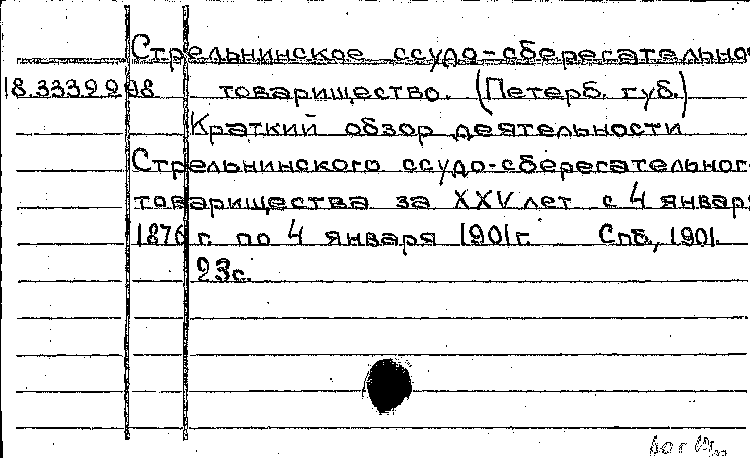 Стрельнинское ссудо-сберегательно
18.333.9.2.98 товарищество. (Петерб. губ.)
Краткий обзор деятельности
Стрельнинского ссудо-сберегательног
товарищества за XXV лет с 4 январ
1876 г. по 4 января 1901 г. Спб., 1901.
23с.